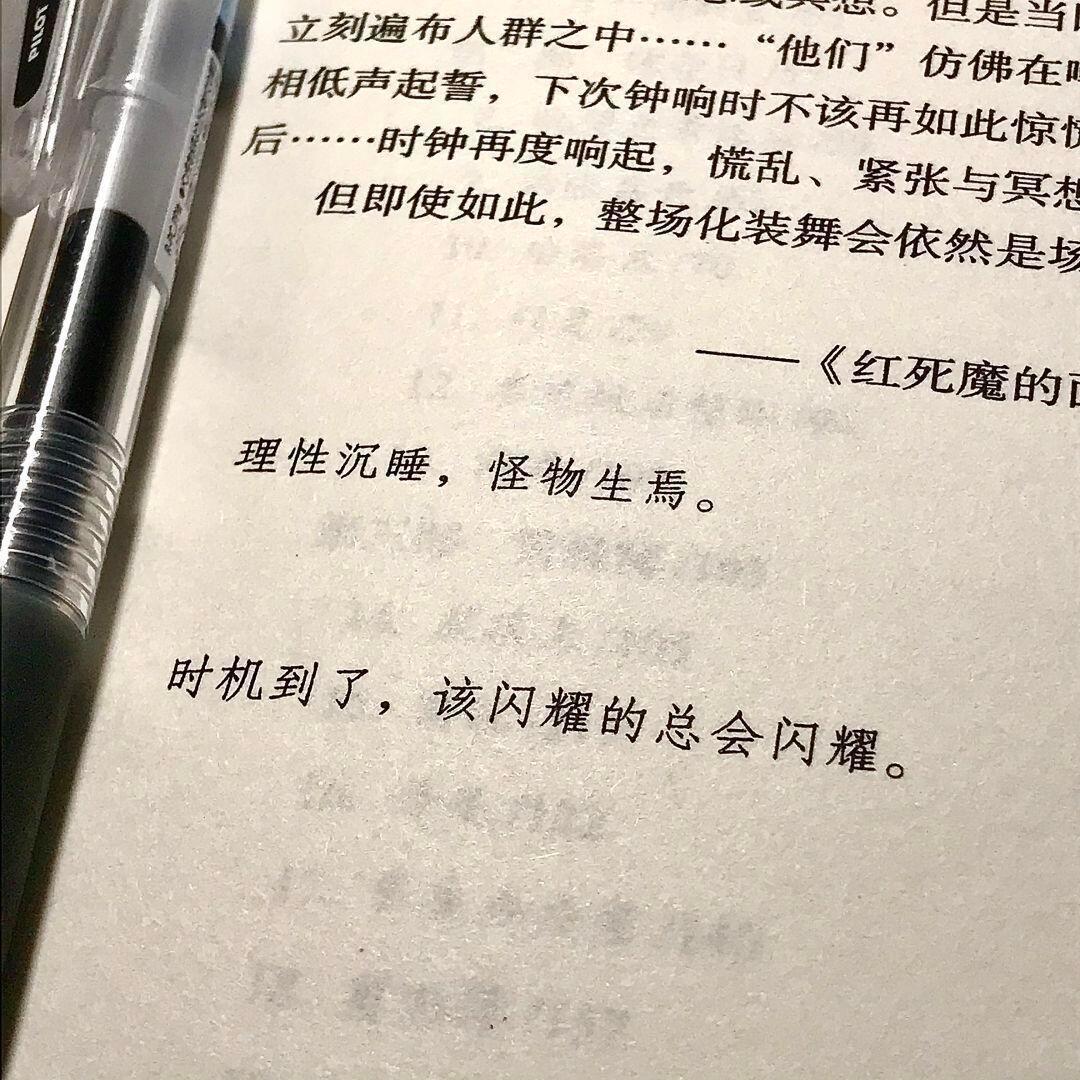 PILOT
冥想。但是当
立刻遍布人群之中……“他们”仿佛在
相低声起誓，下次钟响时不该再如此惊
后……时钟再度响起，慌乱、紧张与冥想
但即使如此，整场化装舞会依然是场
——《红死魔的
理性沉睡，怪物生焉。
时机到了，该闪耀的总会闪耀。